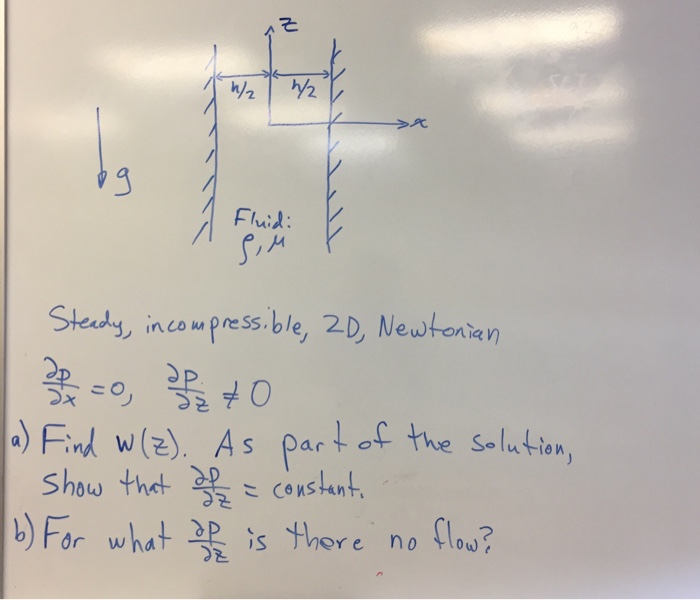 z
h/2 h/2
x
g
Fluid:
ρ, μ
Steady, incompressible, 2D, Newtonian
∂p/∂x = 0, ∂p/∂z ≠ 0
a) Find w(z). As part of the solution,
show that ∂p/∂z = constant.
b) For what ∂p/∂z is there no flow?